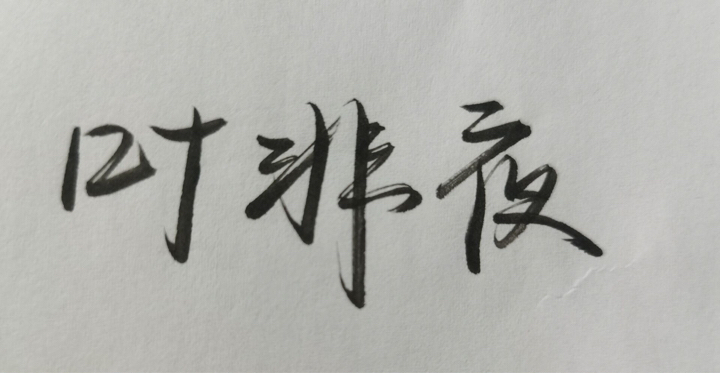 叶非夜